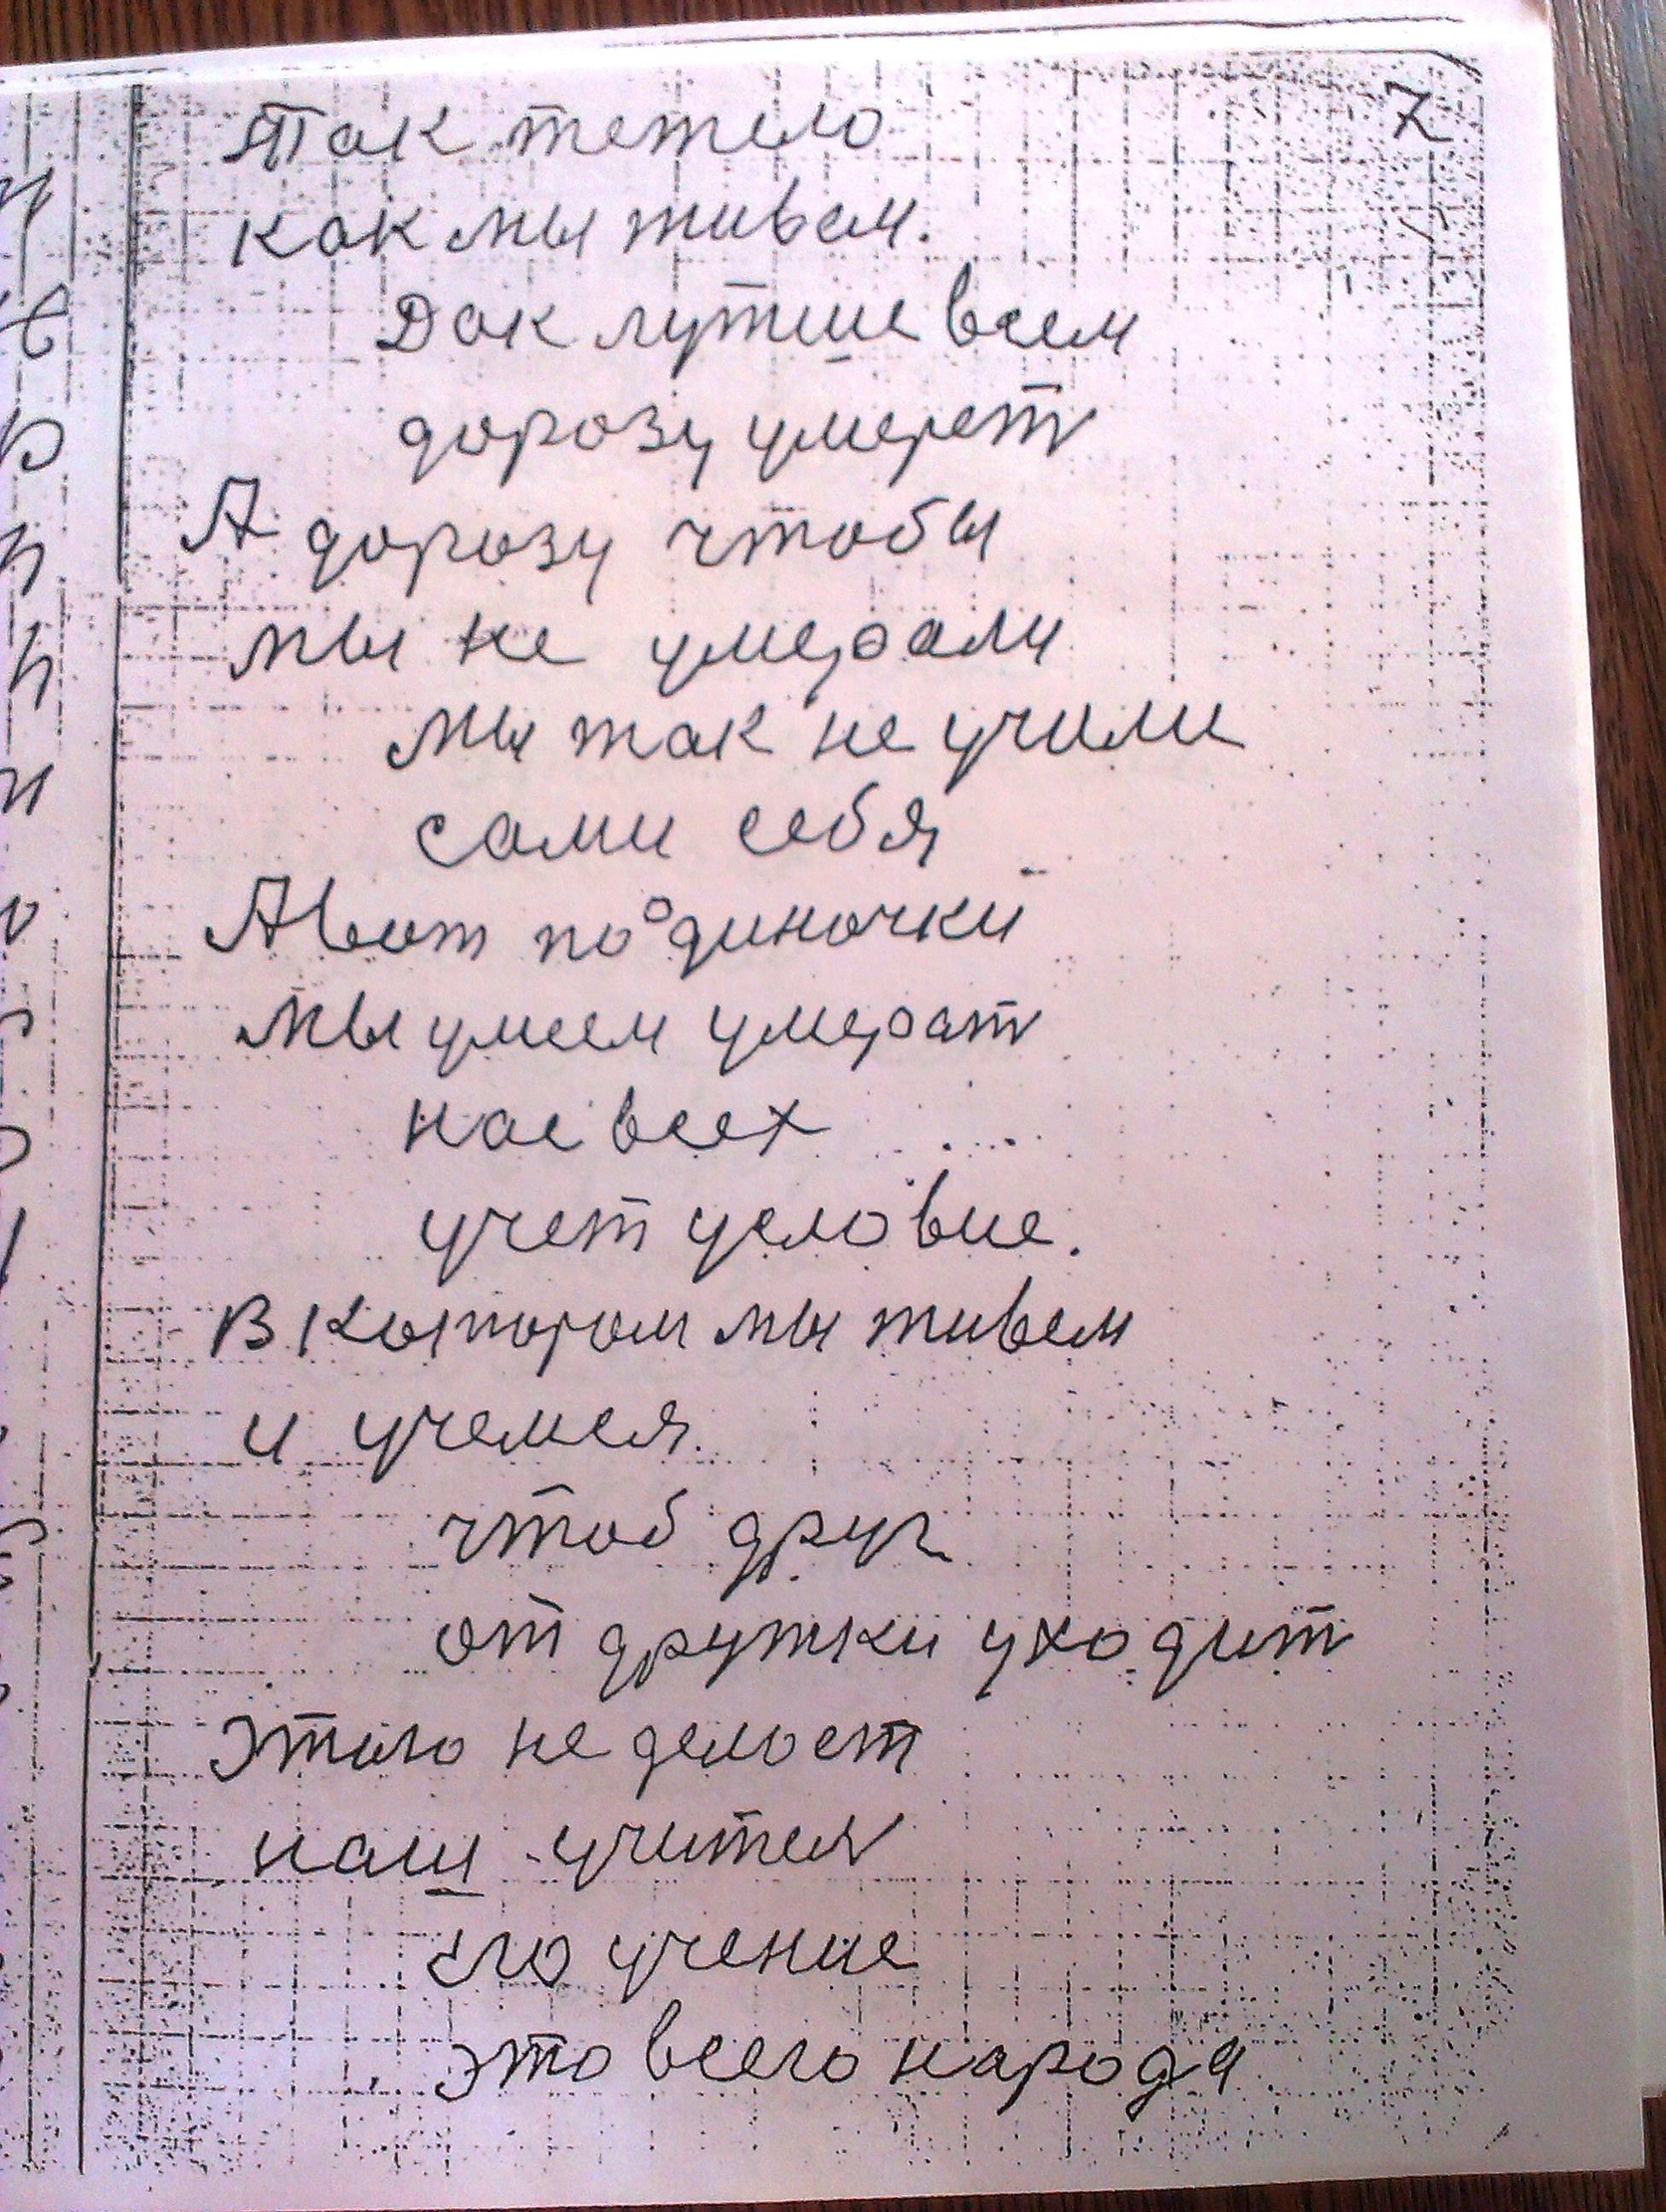 7
Так тежело
как мы живем.
Дак лутше всем
дорозу умерет
А дорозу чтобы
мы не умерали
мы так не учили
сами себя
А вот по одиночки
мы умеем умерат
нас всех
учет условие.
В котором мы живем
и учемся.
чтоб друг
от дружки уходит
Этого не делает
наш учител
Его учение
это всего народа